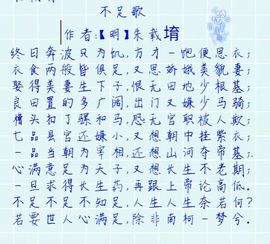 不足歌
作者:【明】朱载堉
终日奔波只为饥,方才一饱便思衣;
衣食两般皆俱足,又思娇娥美貌妻;
娶得美妻生下子,恨无田地少根基;
良田置的多广阔,出门又嫌少马骑;
槽头扣了骡和马,恐无官职被人欺;
七品县官还嫌小,又想朝中挂紫衣;
一品当朝为宰相,还想山河夺帝基;
心满意足为天子,又想长生不老期;
一旦求得长生药,再跟上帝论高低.
不足不足不知足,人生人生奈若何?
若要世人心满足,除非南柯一梦兮.